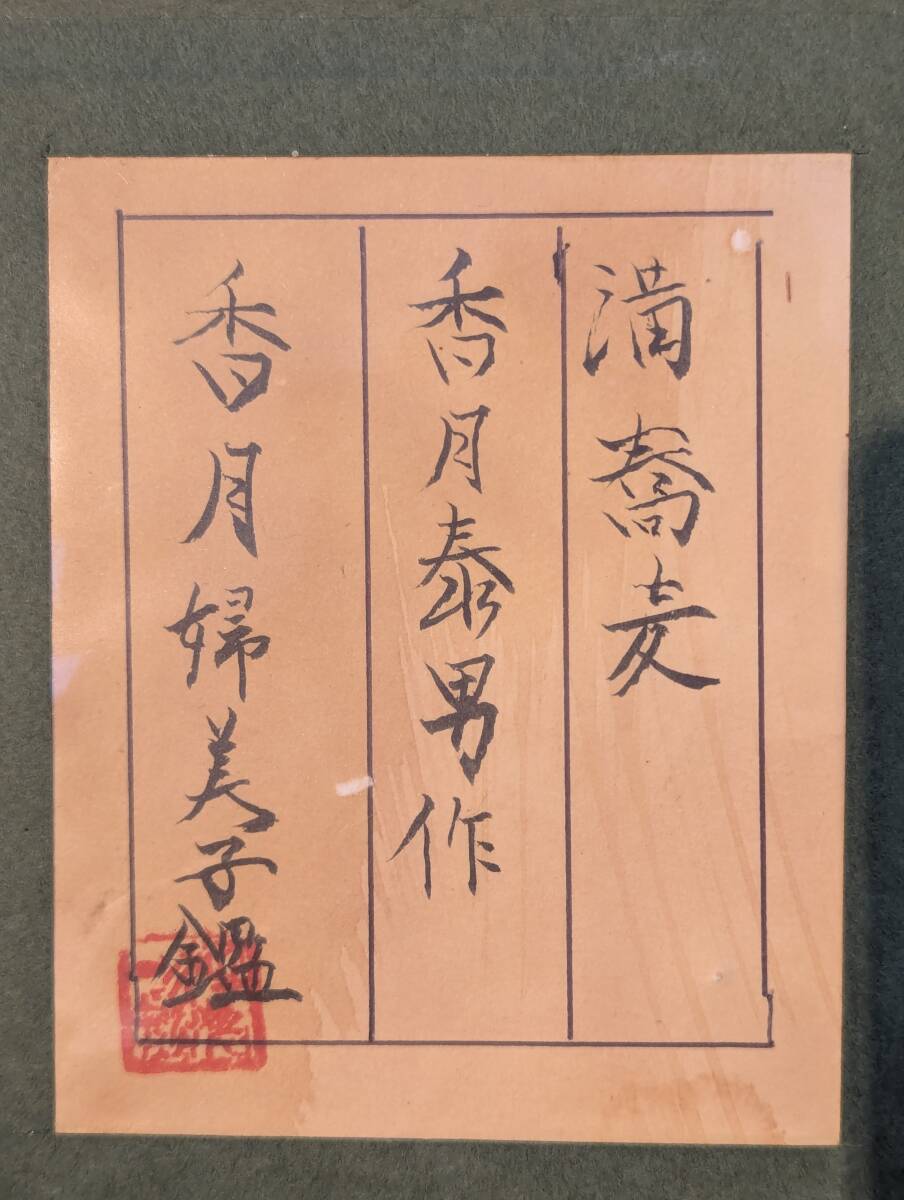 溝蕎麦
香月泰男作
香月婦美子鑑